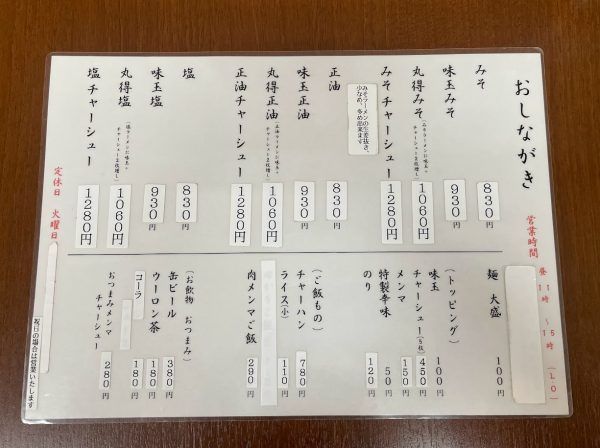 おしながき
営業時間 昼 11時〜15時(LO)
みそ 830円
味玉みそ 930円
丸得みそ 1060円
みそチャーシュー 1280円
みそラーメンの生姜抜き、少なめ、多め出来ます
正油 830円
味玉正油 930円
丸得正油(正油ラーメンに味玉+チャーシュー2枚増し) 1060円
正油チャーシュー 1280円
塩 830円
味玉塩 930円
丸得塩(塩ラーメンに味玉+チャーシュー2枚増し) 1060円
塩チャーシュー 1280円
定休日 火曜日
麺 大盛 100円
(トッピング)
味玉 100円
チャーシュー 450円
メンマ 150円
特製辛味 50円
のり 120円
(ご飯もの)
チャーハン 780円
ライス(小) 110円
肉メンマご飯 290円
(お飲物 おつまみ)
缶ビール 380円
ウーロン茶 180円
コーラ 180円
おつまみメンマチャーシュー 280円
祝日の場合は営業いたします